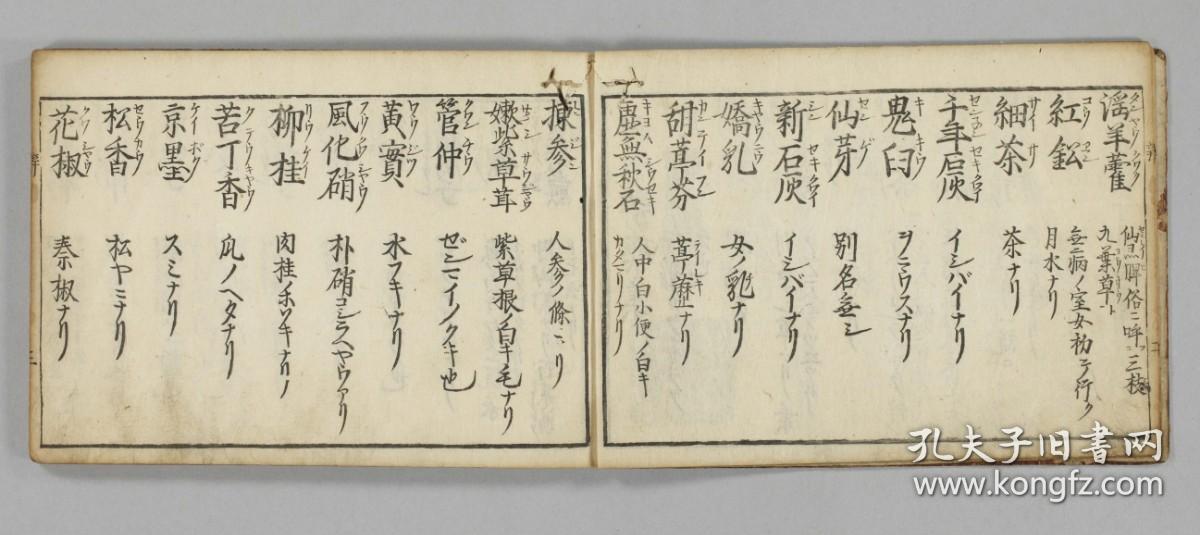 淫羊藿 仙灵脾俗ニ呼フ三枝
九葉草ト
紅鉛 月水ナリ
無病ノ室女初テ行ク
細茶 茶ナリ
千年石灰 イシバイナリ
鬼臼 ヲニウスナリ
仙芽 別名無シ
新石灰 イシバイナリ
嬌乳 女ノ乳ナリ
胡葶芬 葶藶ナリ
虚無秋石 人中ノ白小便ノ白キ
カタマリナリ
揀参 人参ノ條ニアリ
嫩紫草茸 紫草根ノ白キ毛ナリ
管仲 ゼンマイノクキ也
黄實 水フキナリ
風化硝 朴硝コシラヘヤウアリ
柳桂 肉桂ホソキナリ
苦丁香 瓜ノヘタナリ
京墨 スミナリ
松香 松ヤニナリ
花椒 秦椒ナリ
孔夫子旧书网
www.kongfz.com